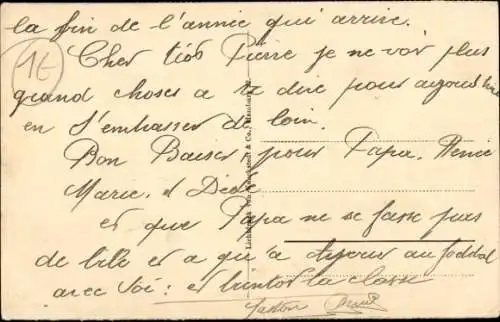 la fin de l'année qui arrive.
1E
Cher tios Pierre je ne voir plus
grand choses a te dire pour aujourd'hui
en t'embrasser de loin.
Bon Baiser pour Papa. Renée
Marie. et Dédé
et que Papa ne se fasse pas
de bile et a qu'a disperer au foodbal
avec toi : et bientot la classe
Gaston